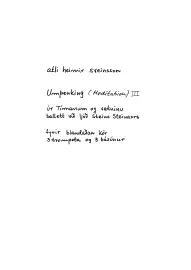 atli heimir sveinsson
Umþenking (Meditation) III
úr Tímanum og vatninu
ballett við ljóð Steins Steinarrs
fyrir blandaðan kór
3 trompeta og 3 básúnur